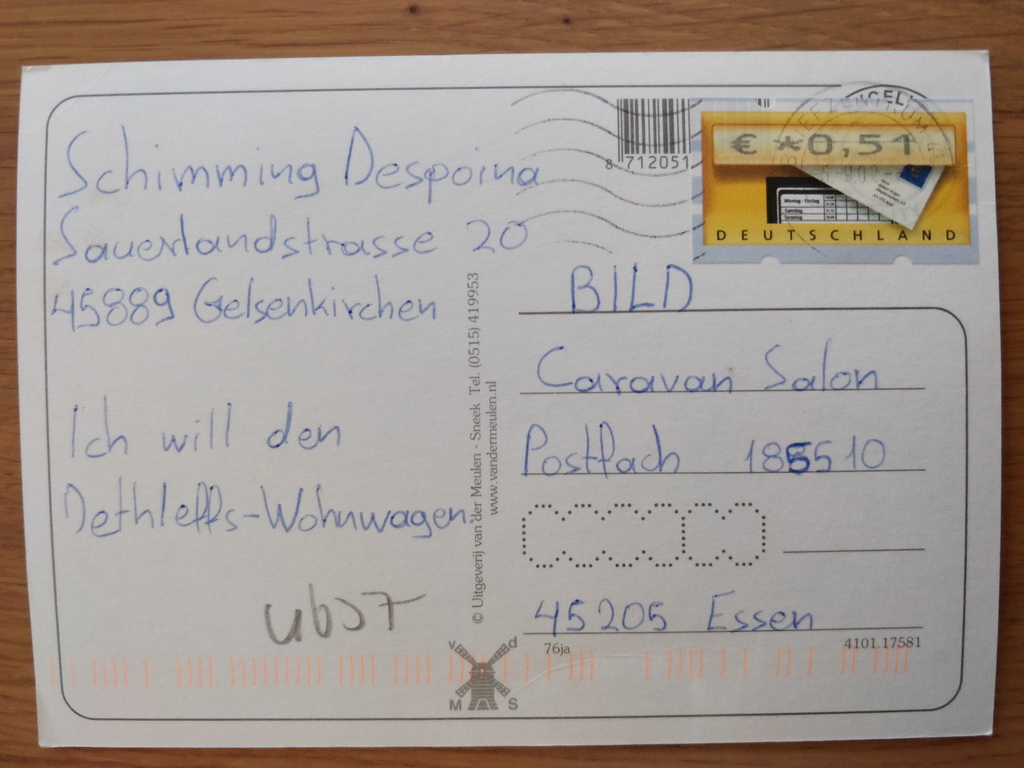 Schimming Despoina
Sauerlandstrasse 20
45889 Gelsenkirchen
Ich will den
Dethleffs-Wohnwagen.
© Uitgeverij van der Meulen - Sneek Tel. (0515) 419953
www.vandermeulen.nl
v d
M S
8 712051
€ *0,51
DEUTSCHLAND
BILD
Caravan Salon
Postfach 185510
45205 Essen
76ja
4101.17581